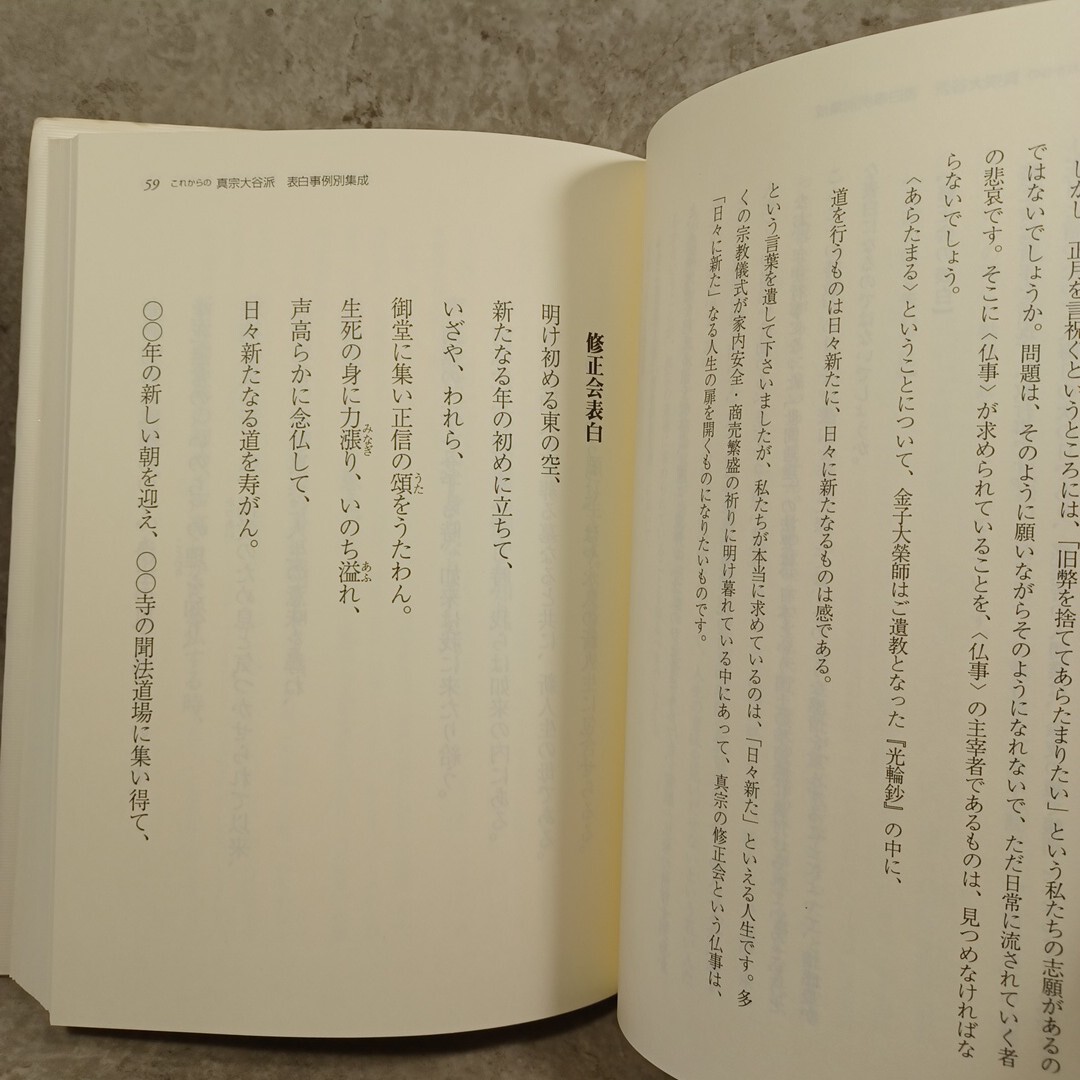 しかし、正月を言祝くというところには、「旧弊を捨ててあらたまりたい」という私たちの志願があるの
ではないでしょうか。問題は、そのように願いながらそのようになれないで、ただ日常に流されていく者
の悲哀です。そこに〈仏事〉が求められていることを、〈仏事〉の主宰者であるものは、見つめなければな
らないでしょう。
〈あらたまる〉ということについて、金子大榮師はご遺教となった『光輪鈔』の中に、
道を行うものは日々新たに、日々に新たなるものは感である。
という言葉を遺して下さいましたが、私たちが本当に求めているのは、「日々新た」といえる人生です。多
くの宗教儀式が家内安全・商売繁盛の祈りに明け暮れている中にあって、真宗の修正会という仏事は、
「日々に新た」なる人生の扉を開くものになりたいものです。
59 これからの 真宗大谷派 表白事例別集成
修正会表白
明け初める東の空、
新たなる年の初めに立ちて、
いざや、われら、
御堂に集い正信の頌をうたわん。
うた
生死の身に力漲り、いのち溢れ、
みなぎ
あふ
声高らかに念仏して、
日々新たなる道を寿がん。
〇〇年の新しい朝を迎え、〇〇寺の聞法道場に集い得て、